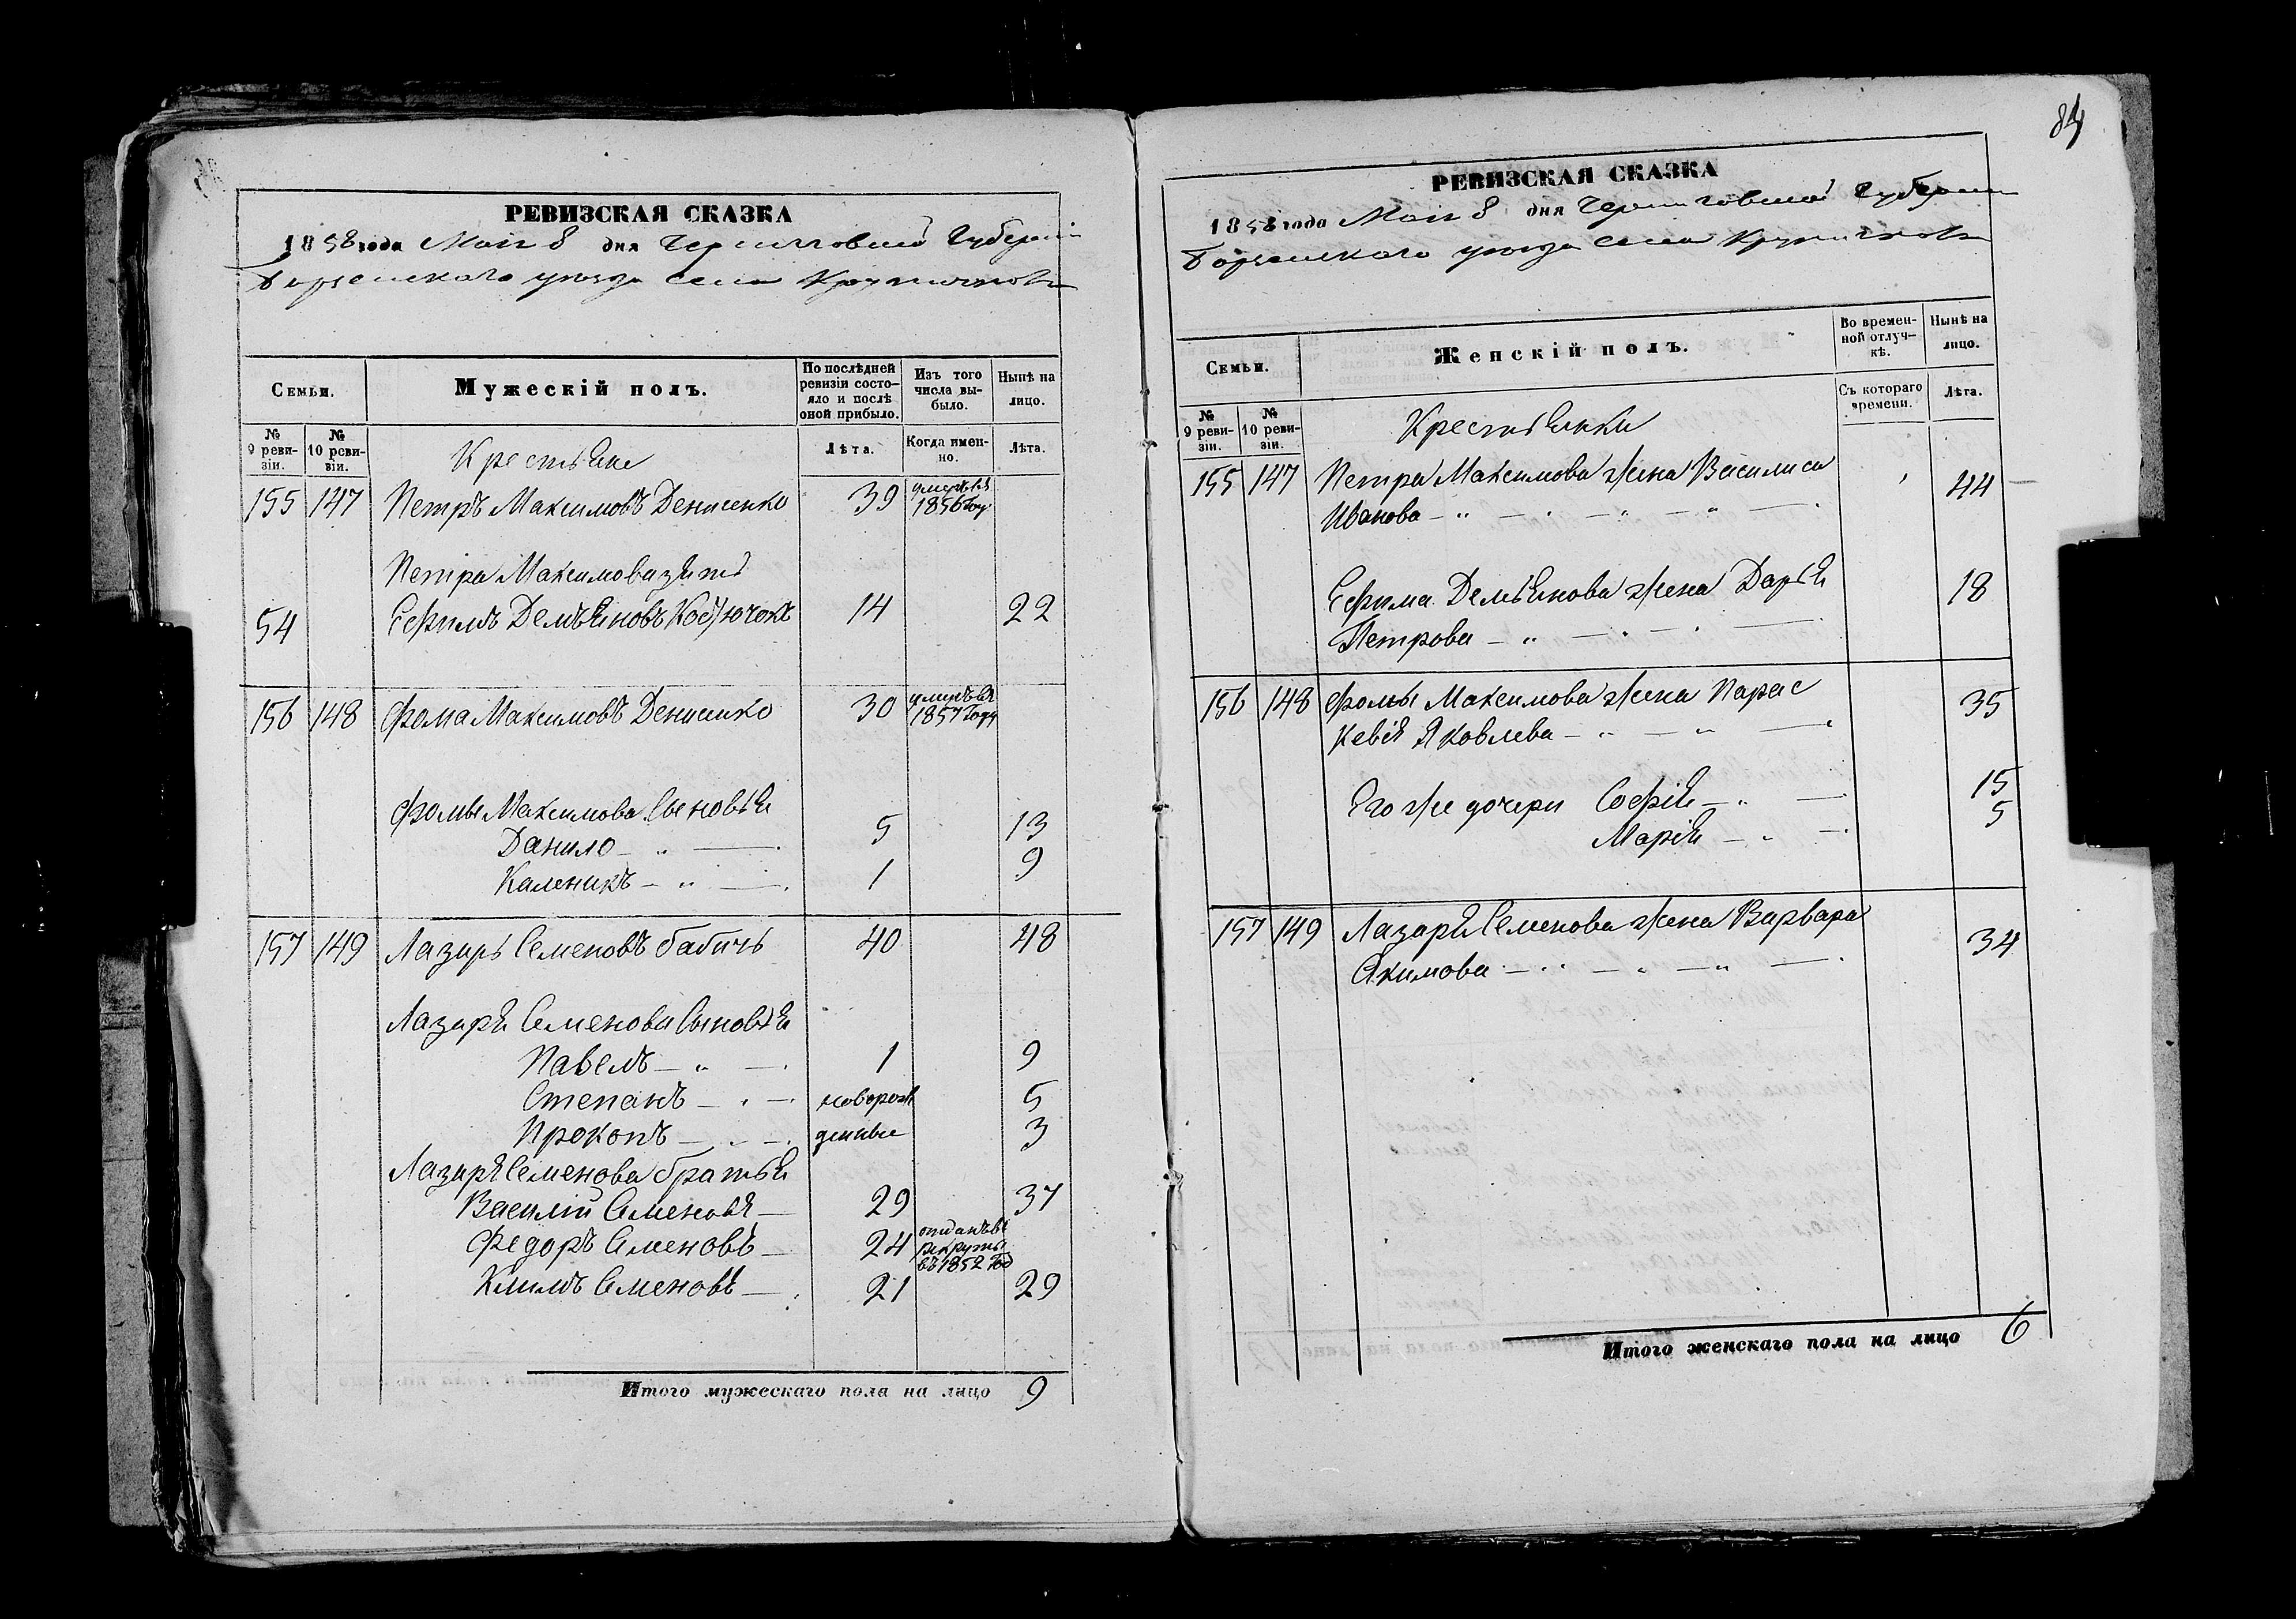 РЕВИЗСКАЯ СКАЗКА
1858 года Мая 8 дня Черниговской Губернии
Борзенского уѣзда Села Крупичполя
Семьи.
Мужескій полъ.
По послѣдней ревизіи состояло и послѣ оной прибыло.
Изъ того числа выбыло.
Нынѣ на лицо.
№ 9 ревизіи.
№ 10 ревизіи.
Крестьяне
Лѣта.
Когда именно.
Лѣта.
155 147 Петръ Максимовъ Денисенко 39 умеръ въ 1856 Году
Петра Максимова зять
54 Ефимъ Демьяновъ 14 22
156 148 Фома Максимовъ Денисенко 30 умеръ въ 1857 Году
Фомы Максимова Сыновья
Данило 5 13
Каленикъ 1 9
157 149 Лазарь Семеновъ Бабичь 40 48
Лазаря Семенова Сыновья
Павелъ 1 9
Степанъ новорож 5
Прокопъ денные 3
Лазаря Семенова братья
Василій Семеновъ 29 37
Федоръ Семеновъ 24 отданъ въ рекруты въ 1852 Год
Климъ Семеновъ 21 29
Итого мужескаго пола на лицо 9
84
РЕВИЗСКАЯ СКАЗКА
1858 года Мая 8 дня Черниговской Губернии
Борзенского уѣзда Села Крупичполя
Семьи.
Женскій полъ.
Во временной отлучкѣ.
Нынѣ на лицо.
№ 9 ревизіи.
№ 10 ревизіи.
Крестьянки
Съ котораго времени.
Лѣта.
155 147 Петра Максимова жена Василиса
Иванова 44
Ефима Демьянова жена Дарья
Петрова 18
156 148 Фомы Максимова жена Парас
кевія Яковлева 35
Его же дочери Софія 15
Марія 5
157 149 Лазаря Семенова жена Варвара
Якимова 34
Итого женскаго пола на лицо 6